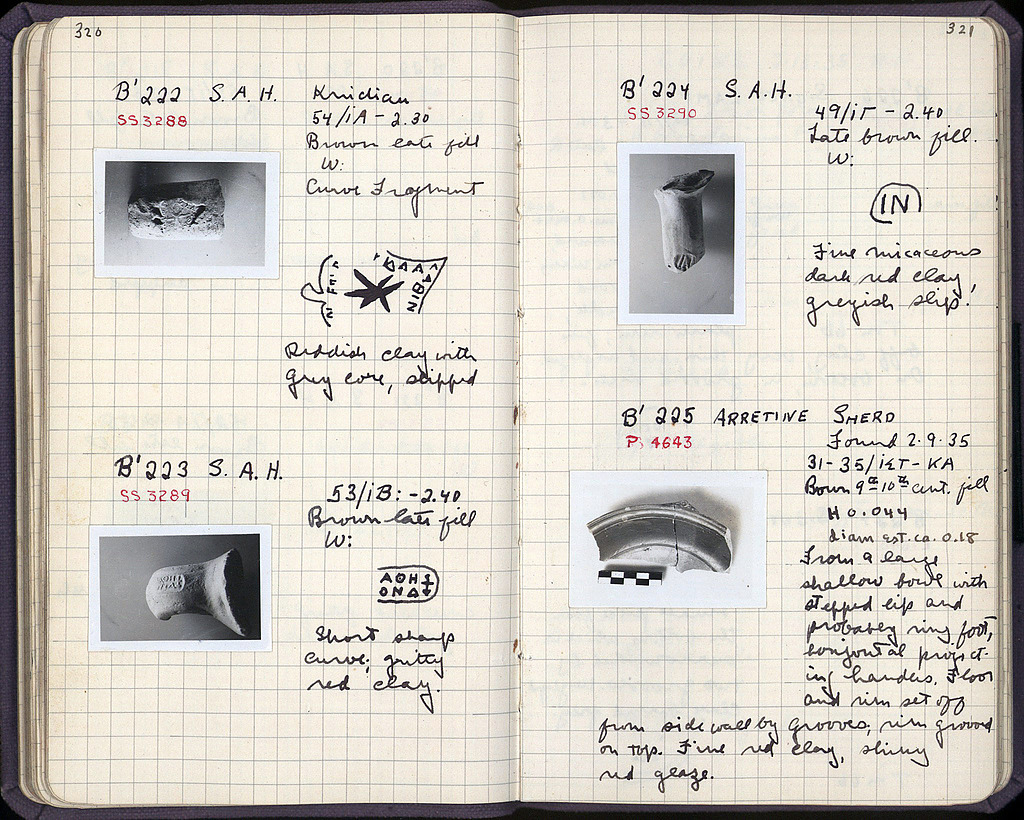 320
B' 222 S. A. H.
SS 3288
Knidian
54/iA - 2.30
Brown late fill
W:
Curve Fragment
NIBIA
Reddish clay with
grey core, slipped
B' 223 S. A. H.
SS 3289
53/iB: -2.40
Brown late fill
W:
ΑΘΗ
ΟΝΔ
Short sharp
curve; gritty
red clay.
321
B' 224 S.A.H.
SS 3290
49/iΓ - 2.40
Late brown fill.
W:
IN
Fine micaceous
dark red clay
greyish slip!
B' 225 ARRETINE SHERD
P. 4643
Found 2.9.35
31-35/ - KA
Bown 9th 10th cent. fill
H 0.044
diam est. ca. 0.18
From a large
shallow bowl with
stepped lip and
probably ring foot,
horizontal project-
ing handles. Floor
and rim set off
from side wall by grooves; rim grooved
on top. Fine red clay, shiny
red glaze.